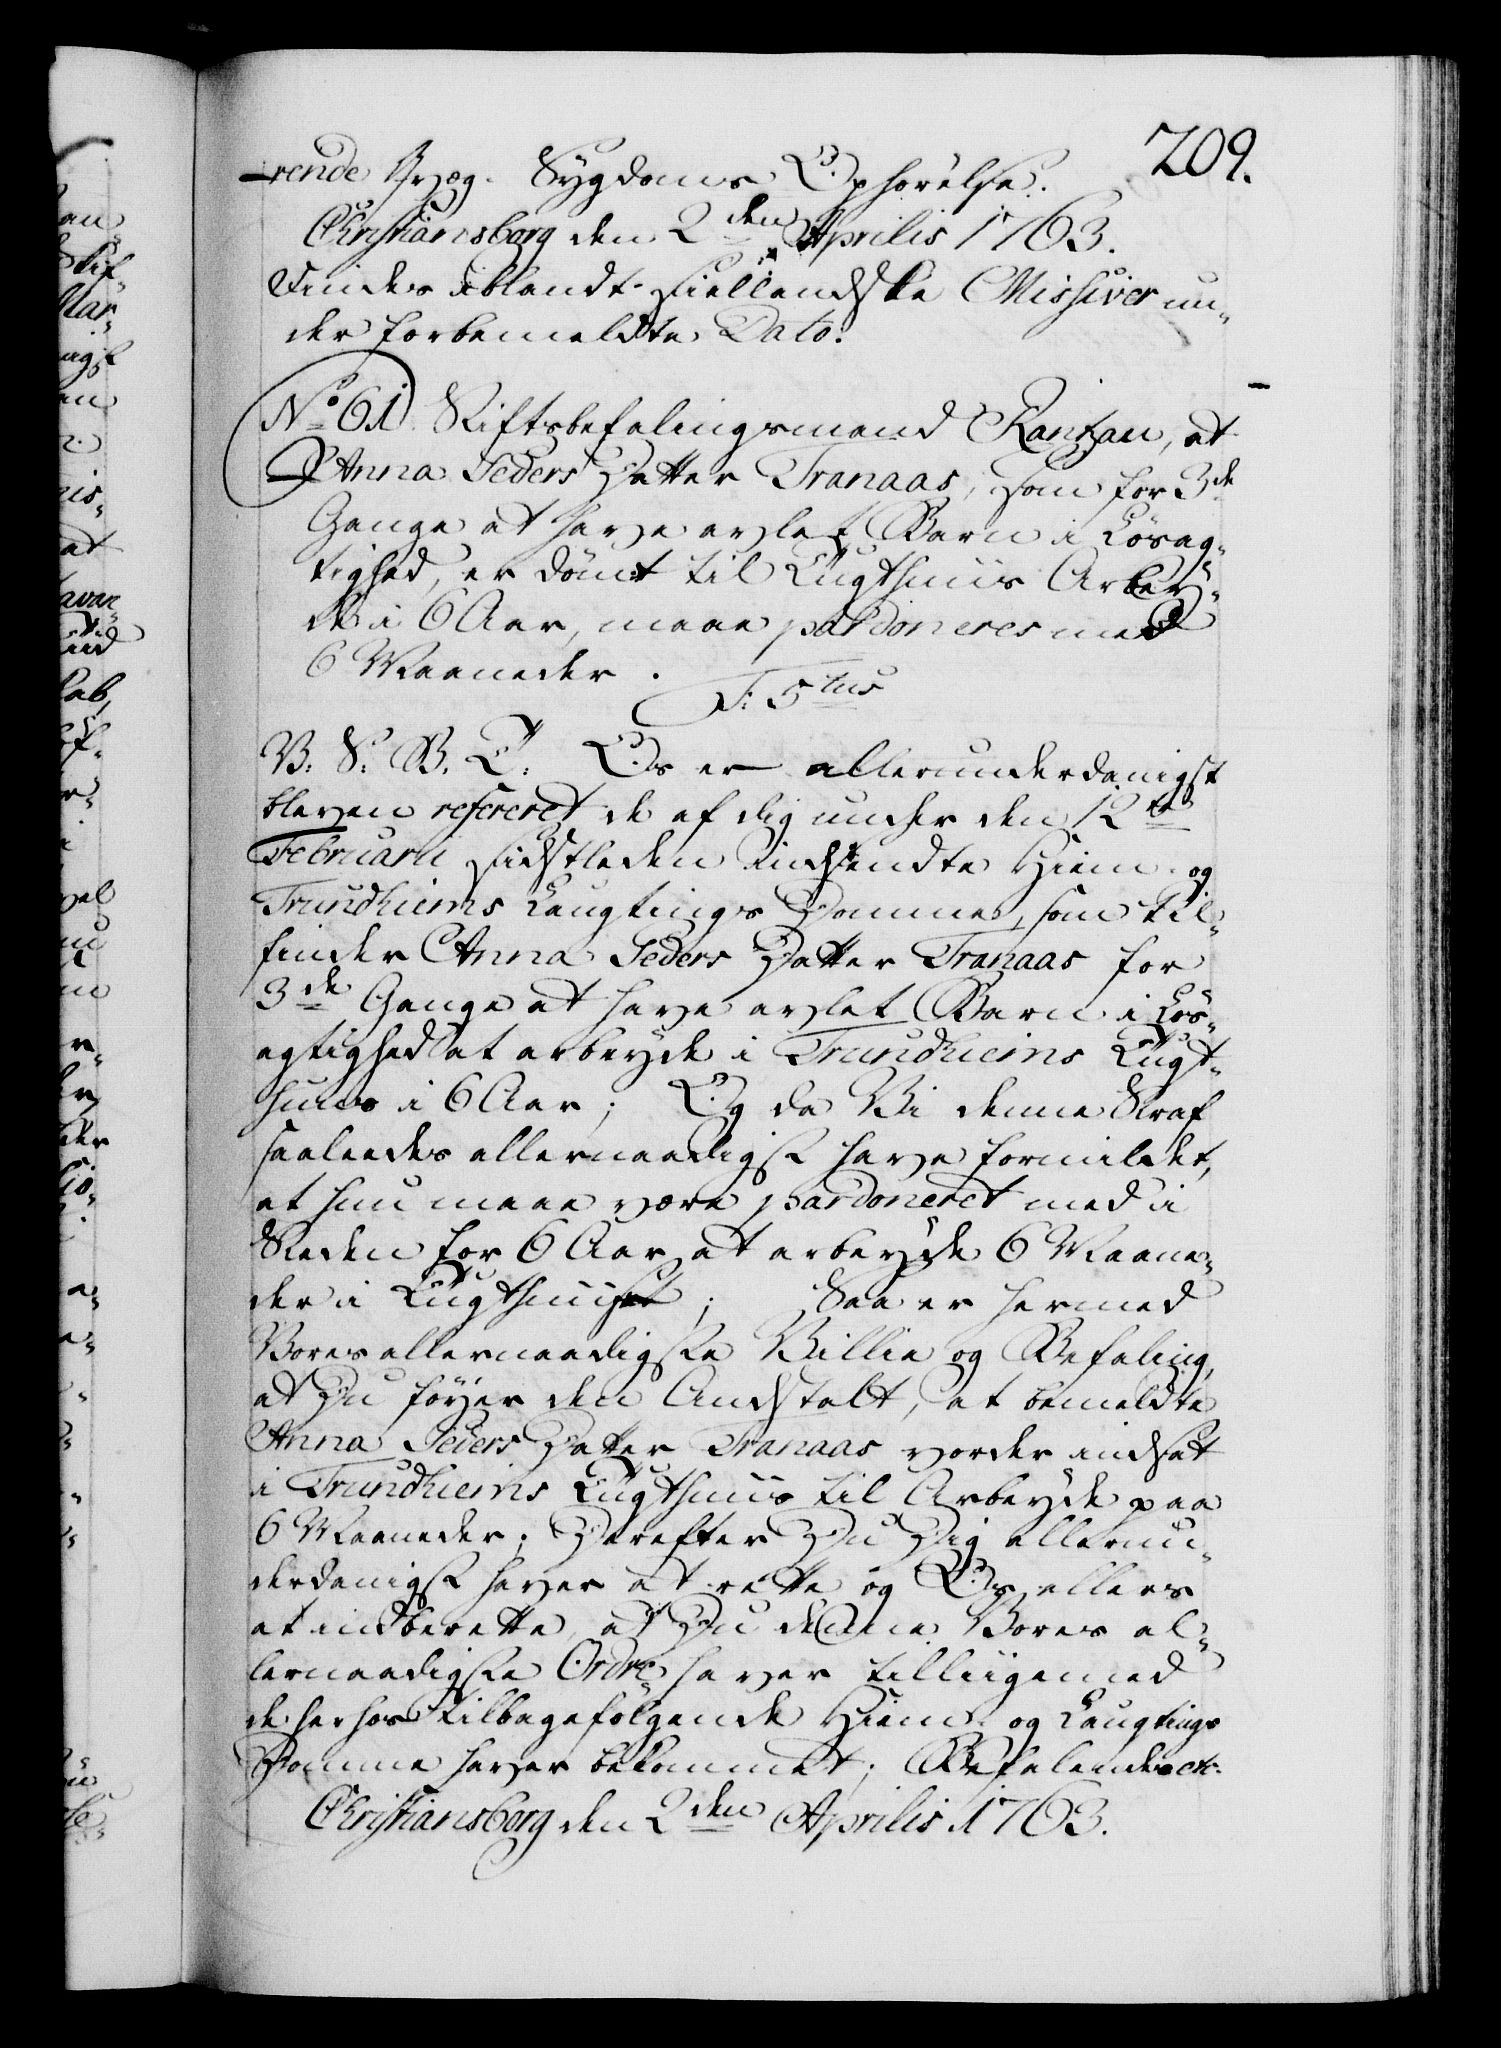 209.
-rende Qvæg-Sygdoms Ophørelse.
Christiansborg den 2den Aprilis 1763.
Findes iblandt Siellandske Missiver un-
der forbemeldte Dato.
No 61. Stiftsbefalingsmand Rantzau, at
Anna Peders Datter Tranaas, som for 3de
Gange at have avlet Barn i Løsag-
tighed, er dømt til Tugthuus Arbey-
de i 6 Aar, maae pardoneres med
6 Maaneder.
T: 5tus
V: S: B. T: Os er allerunderdanigst
bleven refereret de af dig under den 12te
Februarii sidstleden indsendte Hiem- og
Trundhiems Laugtings Domme, som til-
finder Anna Peders Datter Tranaas for
3de Gange at have avlet Barn i Løs-
agtighed at arbeyde i Trundhiems Tugt-
huus i 6 Aar; Og da Vi denne Straf
saaledes allernaadigst have formildet,
at hun maae være pardoneret med i
Steden for 6 Aar at arbeyde 6 Maane-
der i Tugthuuset; Saa er hermed
Vores allernaadigste Villie og Befaling,
at Du føyer den Andstalt, at bemeldte
Anna Peders Datter Tranaas vorder indsat
i Trundhiems Tugthuus til Arbeyde paa
6 Maaneder; Derefter Du Dig allerun-
derdanigst haver at rette og Os ellers
at indberette, at Du denne Vores al-
lernaadigste Ordre haver tilliigemed
de herhos tilbagefølgende Hiem- og Laugtings
Domme haver bekommet; Befalendes etc.
Christiansborg den 2den Aprilis 1763.